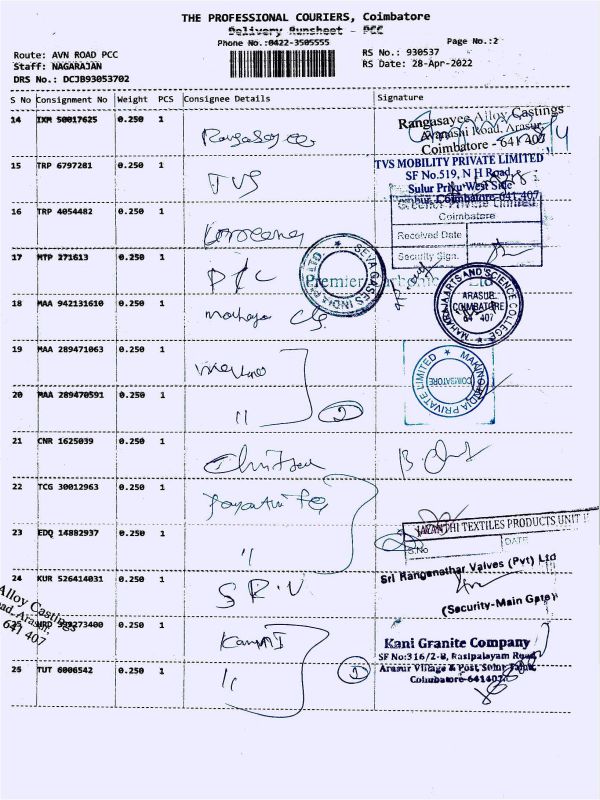 THE PROFESSIONAL COURIERS, Coimbatore
Delivery Runsheet - PCC
Phone No.:0422-3505555 Page No.:2
Route: AVN ROAD PCC RS No.: 930537
Staff: NAGARAJAN RS Date: 28-Apr-2022
DRS No.: DCJB93053702
S No Consignment No Weight PCS Consignee Details Signature
14 IXM 50017625 0.250 1
Rangasayee Alloy Castings
Avanashi Road, Arasur,
Coimbatore - 641 407
15 TRP 6797281 0.250 1 TVS
TVS MOBILITY PRIVATE LIMITED
SF No.519, N H Road,
Sulur Pirivu West Side
Coimbatore-641 407
16 TRP 4054482 0.250 1
Private Limited
Coimbatore
Received Date
Security Sign.
17 MTP 271613 0.250 1
SEVA GASES INDIA
Premier Ltd
18 MAA 942131610 0.250 1
MAHARAJA ARTS AND SCIENCE COLLEGE
ARASUR
COIMBATORE
641 407
19 MAA 289471063 0.250 1
MAKINO INDIA PRIVATE LIMITED
COIMBATORE
20 MAA 289470591 0.250 1 "
21 CNR 1625039 0.250 1
22 TCG 30012963 0.250 1
JAYANTHI TEXTILES PRODUCTS UNIT
S.No DATE
23 EDQ 14882937 0.250 1 "
24 KUR 526414031 0.250 1 SRV
Sri Ranganathar Valves (Pvt) Ltd
(Security-Main Gate)
Alloy Castings
Arasur,
641 407
0.250 1
Kani Granite Company
SF No:316/2-B, Rasipalayam Road,
Arasur Village & Post, Sulur Taluk,
Coimbatore-641407.
26 TUT 6006542 0.250 1 "